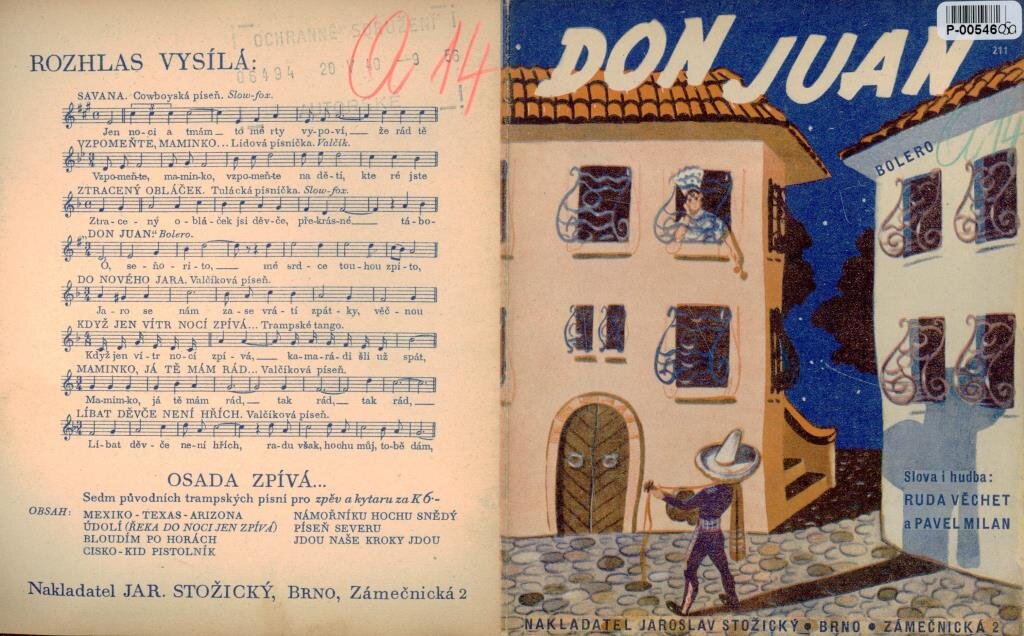 ROZHLAS VYSÍLÁ:
OCHRANNÉ SDRUŽENÍ
06494 20 V 40 -9 56
AUTORSKÉ
A 14
SAVANA. Cowboyská píseň. Slow-fox.
3 3
Jen no-ci a tmám — to mé rty vy-po-ví, — že rád tě
VZPOMEŇTE, MAMINKO... Lidová písnička. Valčík.
Vzpo-meň-te, ma-min-ko, vzpo-meň-te na dě-ti, kte ré jste
ZTRACENÝ OBLÁČEK. Tulácká písnička. Slow-fox.
Ztra-ce-ný o-blá-ček jsi děv-če, pře-krás-né — tá-bo-
„DON JUAN." Bolero.
Ó, se-ňo-ri-to, — mé srd-ce tou-hou zpi-to,
DO NOVÉHO JARA. Valčíková píseň.
Ja-ro se nám za-se vrá-tí zpát-ky, věč-nou
KDYŽ JEN VÍTR NOCÍ ZPÍVÁ... Trampské tango.
Když jen ví-tr no-cí zpí-vá, — ka-ma-rá-di šli už spát,
MAMINKO, JÁ TĚ MÁM RÁD... Valčíková píseň.
Ma-mim-ko, já tě mám rád, — tak rád, — tak rád, —
LÍBAT DĚVČE NENÍ HŘÍCH. Valčíková píseň.
Lí-bat děv-če ne-ní hřích, ra-du však, hochu můj, to-bě dám,
OSADA ZPÍVÁ...
Sedm původních trampských písní pro zpěv a kytaru za K 6·-
OBSAH:
MEXIKO - TEXAS - ARIZONA
ÚDOLÍ (ŘEKA DO NOCI JEN ZPÍVÁ)
BLOUDÍM PO HORÁCH
CISKO - KID PISTOLNÍK
NÁMOŘNÍKU HOCHU SNĚDÝ
PÍSEŇ SEVERU
JDOU NAŠE KROKY JDOU
Nakladatel JAR. STOŽICKÝ, BRNO, Zámečnická 2
P-00546
211
DON JUAN
BOLERO
A 14
Slova i hudba:
RUDA VĚCHET
a PAVEL MILAN
NAKLADATEL JAROSLAV STOŽICKÝ • BRNO • ZÁMEČNICKÁ 2